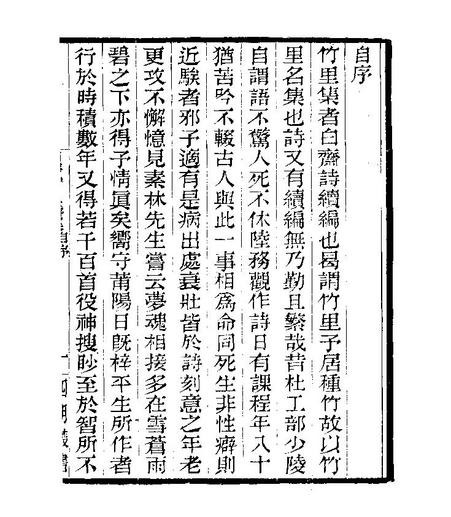 自序
竹里集者白齋詩續編也曷謂竹里予居種竹故以竹
里名集也詩又有續編無乃勤且繁哉昔杜工部少陵
自謂語不驚人死不休陸務觀作詩日有課程年八十
猶苦吟不輟古人與此一事相爲命同死生非性癖則
近騃者邪予適有是病出處衰壯皆於詩刻意之年老
更攻不懈憶見素林先生嘗云夢魂相接多在雪蒼雨
碧之下亦得予情眞矣嚮守莆陽日旣梓平生所作者
行於時積數年又得若干百首役神搜眇至於智所不
四明叢書